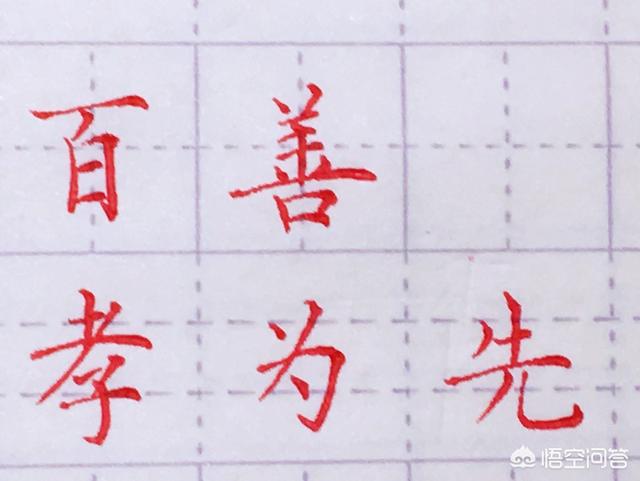 百善
孝为先
悟空问答